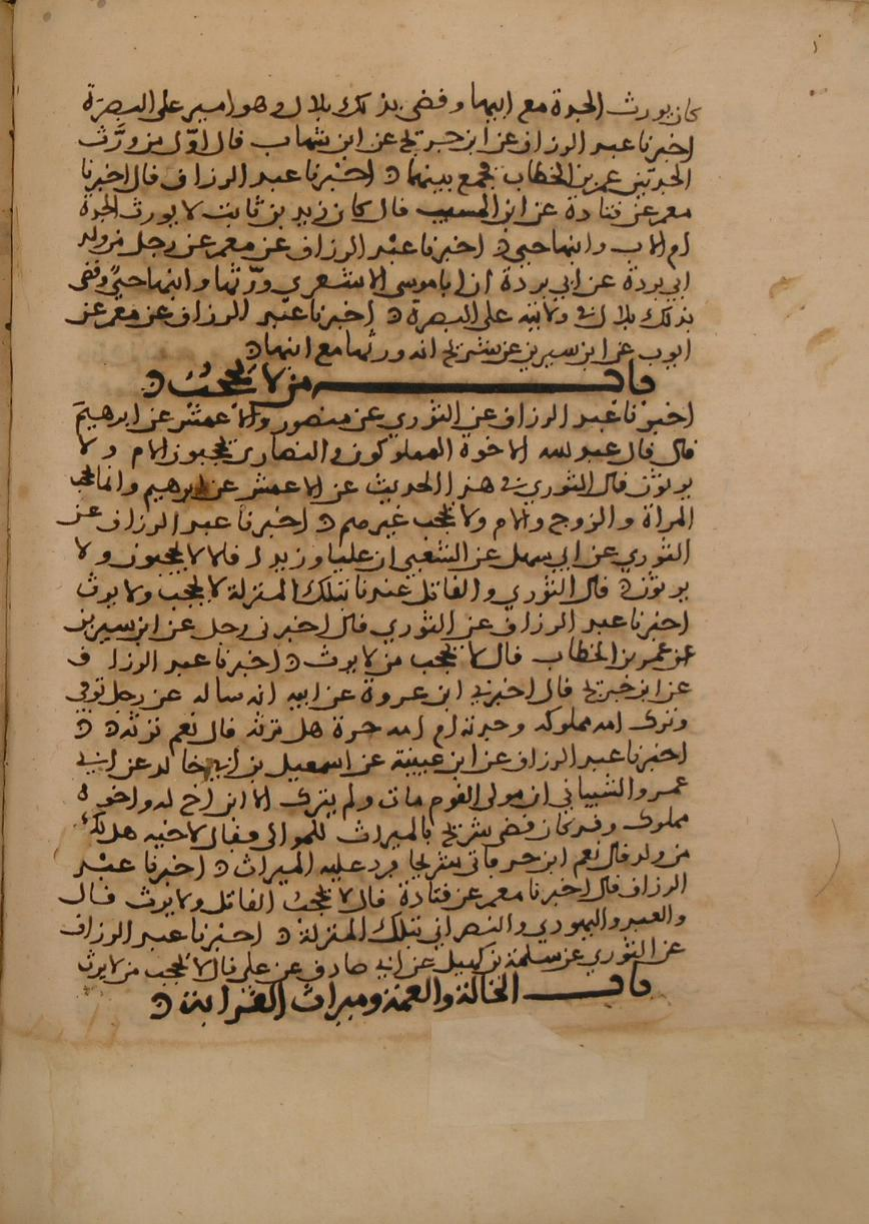 كان يورث الجدة مع ابنها وقضى بذلك بلال وهو امير على البصرة
اخبرنا عبد الرزاق عن ابن جريج عن ابن شهاب قال اول من ورث
الجدتين عمر بن الخطاب فجمع بينهما ه اخبرنا عبد الرزاق قال اخبرنا
معمر عن قتادة عن ابن المسيب قال كان زيد بن ثابت لا يورث الجدة
ام الاب وابنها حي ه اخبرنا عبد الرزاق عن معمر عن رجل من ولد
ابي بردة عن ابي بردة ان ابا موسى الاشعري ورثها وابنها حي وقضى
بذلك بلال في ولايته على البصرة ه اخبرنا عبد الرزاق عن معمر عن
ايوب عن ابن سيرين عن شريح انه ورثها مع ابنها ه
باب من لا يحجب ه
اخبرنا عبد الرزاق عن الثوري عن منصور والاعمش عن ابرهيم
قال قال عبد الله الاخوة المملوكون والنصارى يحجبون الام ولا
يرثون قال الثوري في هذا الحديث عن الاعمش عن ابرهيم وانما يحجب
المراة والزوج والام ولا يحجب غيرهم ه اخبرنا عبد الرزاق عن
الثوري عن ابي سهل عن الشعبي ان عليا وزيدا قالا لا يحجبون ولا
يرثون ه قال الثوري والقاتل عندنا بتلك المنزلة لا يحجب ولا يرث
اخبرنا عبد الرزاق عن الثوري قال اخبرني رجل عن ابن سيرين
عن عمر بن الخطاب قال لا يحجب من لا يرث ه اخبرنا عبد الرزاق
عن ابن جريج قال اخبرني ابن عروة عن ابيه انه ساله عن رجل توفي
وترك امه مملوكه وجدته ام امه حرة هل ترثه قال نعم ترثه ه
اخبرنا عبد الرزاق عن ابن عيينة عن اسمعيل بن ابي خالد عن ابي
عمرو الشيباني ان مولى لقوم مات ولم يترك الا ابن اخ له واخوه
مملوك وقد كان قضى شريح بالميراث للموالي فقال لاخيه هل لك
من ولد قال نعم ابن حر فاتى شريحا فرد عليه الميراث ه اخبرنا عبد
الرزاق قال اخبرنا معمر عن قتادة قال لا يحجب القاتل ولا يرث قال
والعبد واليهودي والنصراني بتلك المنزلة ه اخبرنا عبد الرزاق
عن الثوري عن سلمة بن كهيل عن ابي صادق عن علي قال لا يحجب من لا يرث
باب الخالة والعمة وميراث القرابة ه